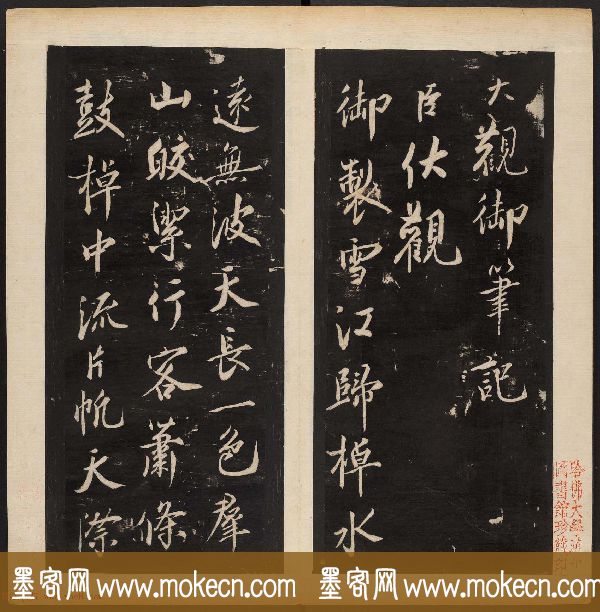 大觀御筆記
臣伏觀
御製雪江歸棹水
遠無波天長一色羣
山皎潔行客蕭條
鼓棹中流片帆天際
哈佛大學
圖書館珍藏印
墨客网 www.mokecn.com 墨客网 www.mokecn.com